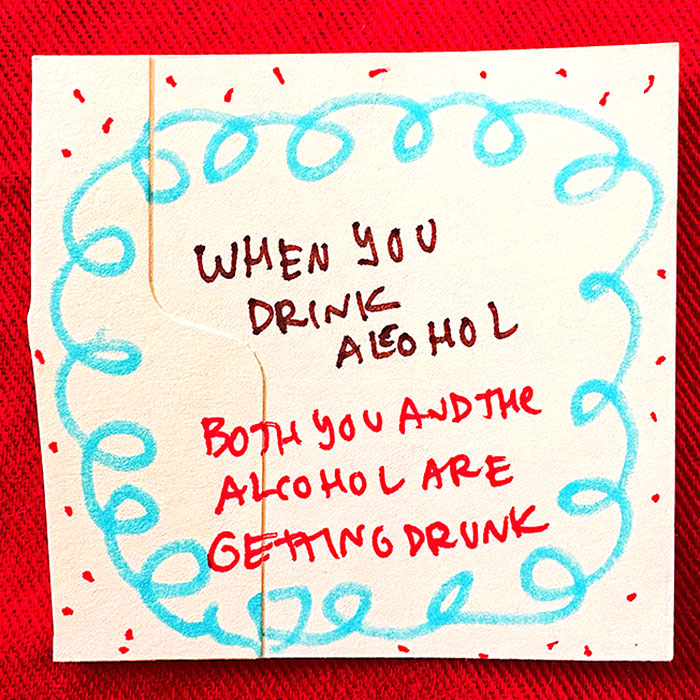 WHEN YOU
DRINK
ALCOHOL
BOTH YOU AND THE
ALCOHOL ARE
GETTING DRUNK